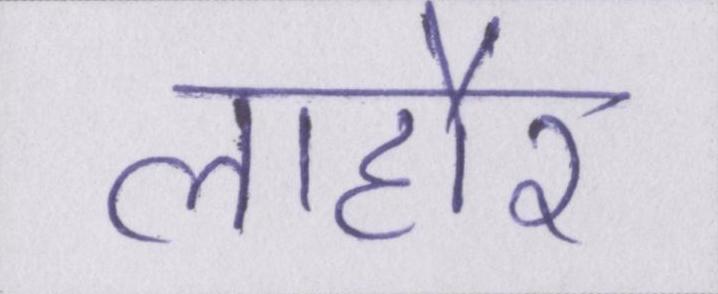 लाहौर